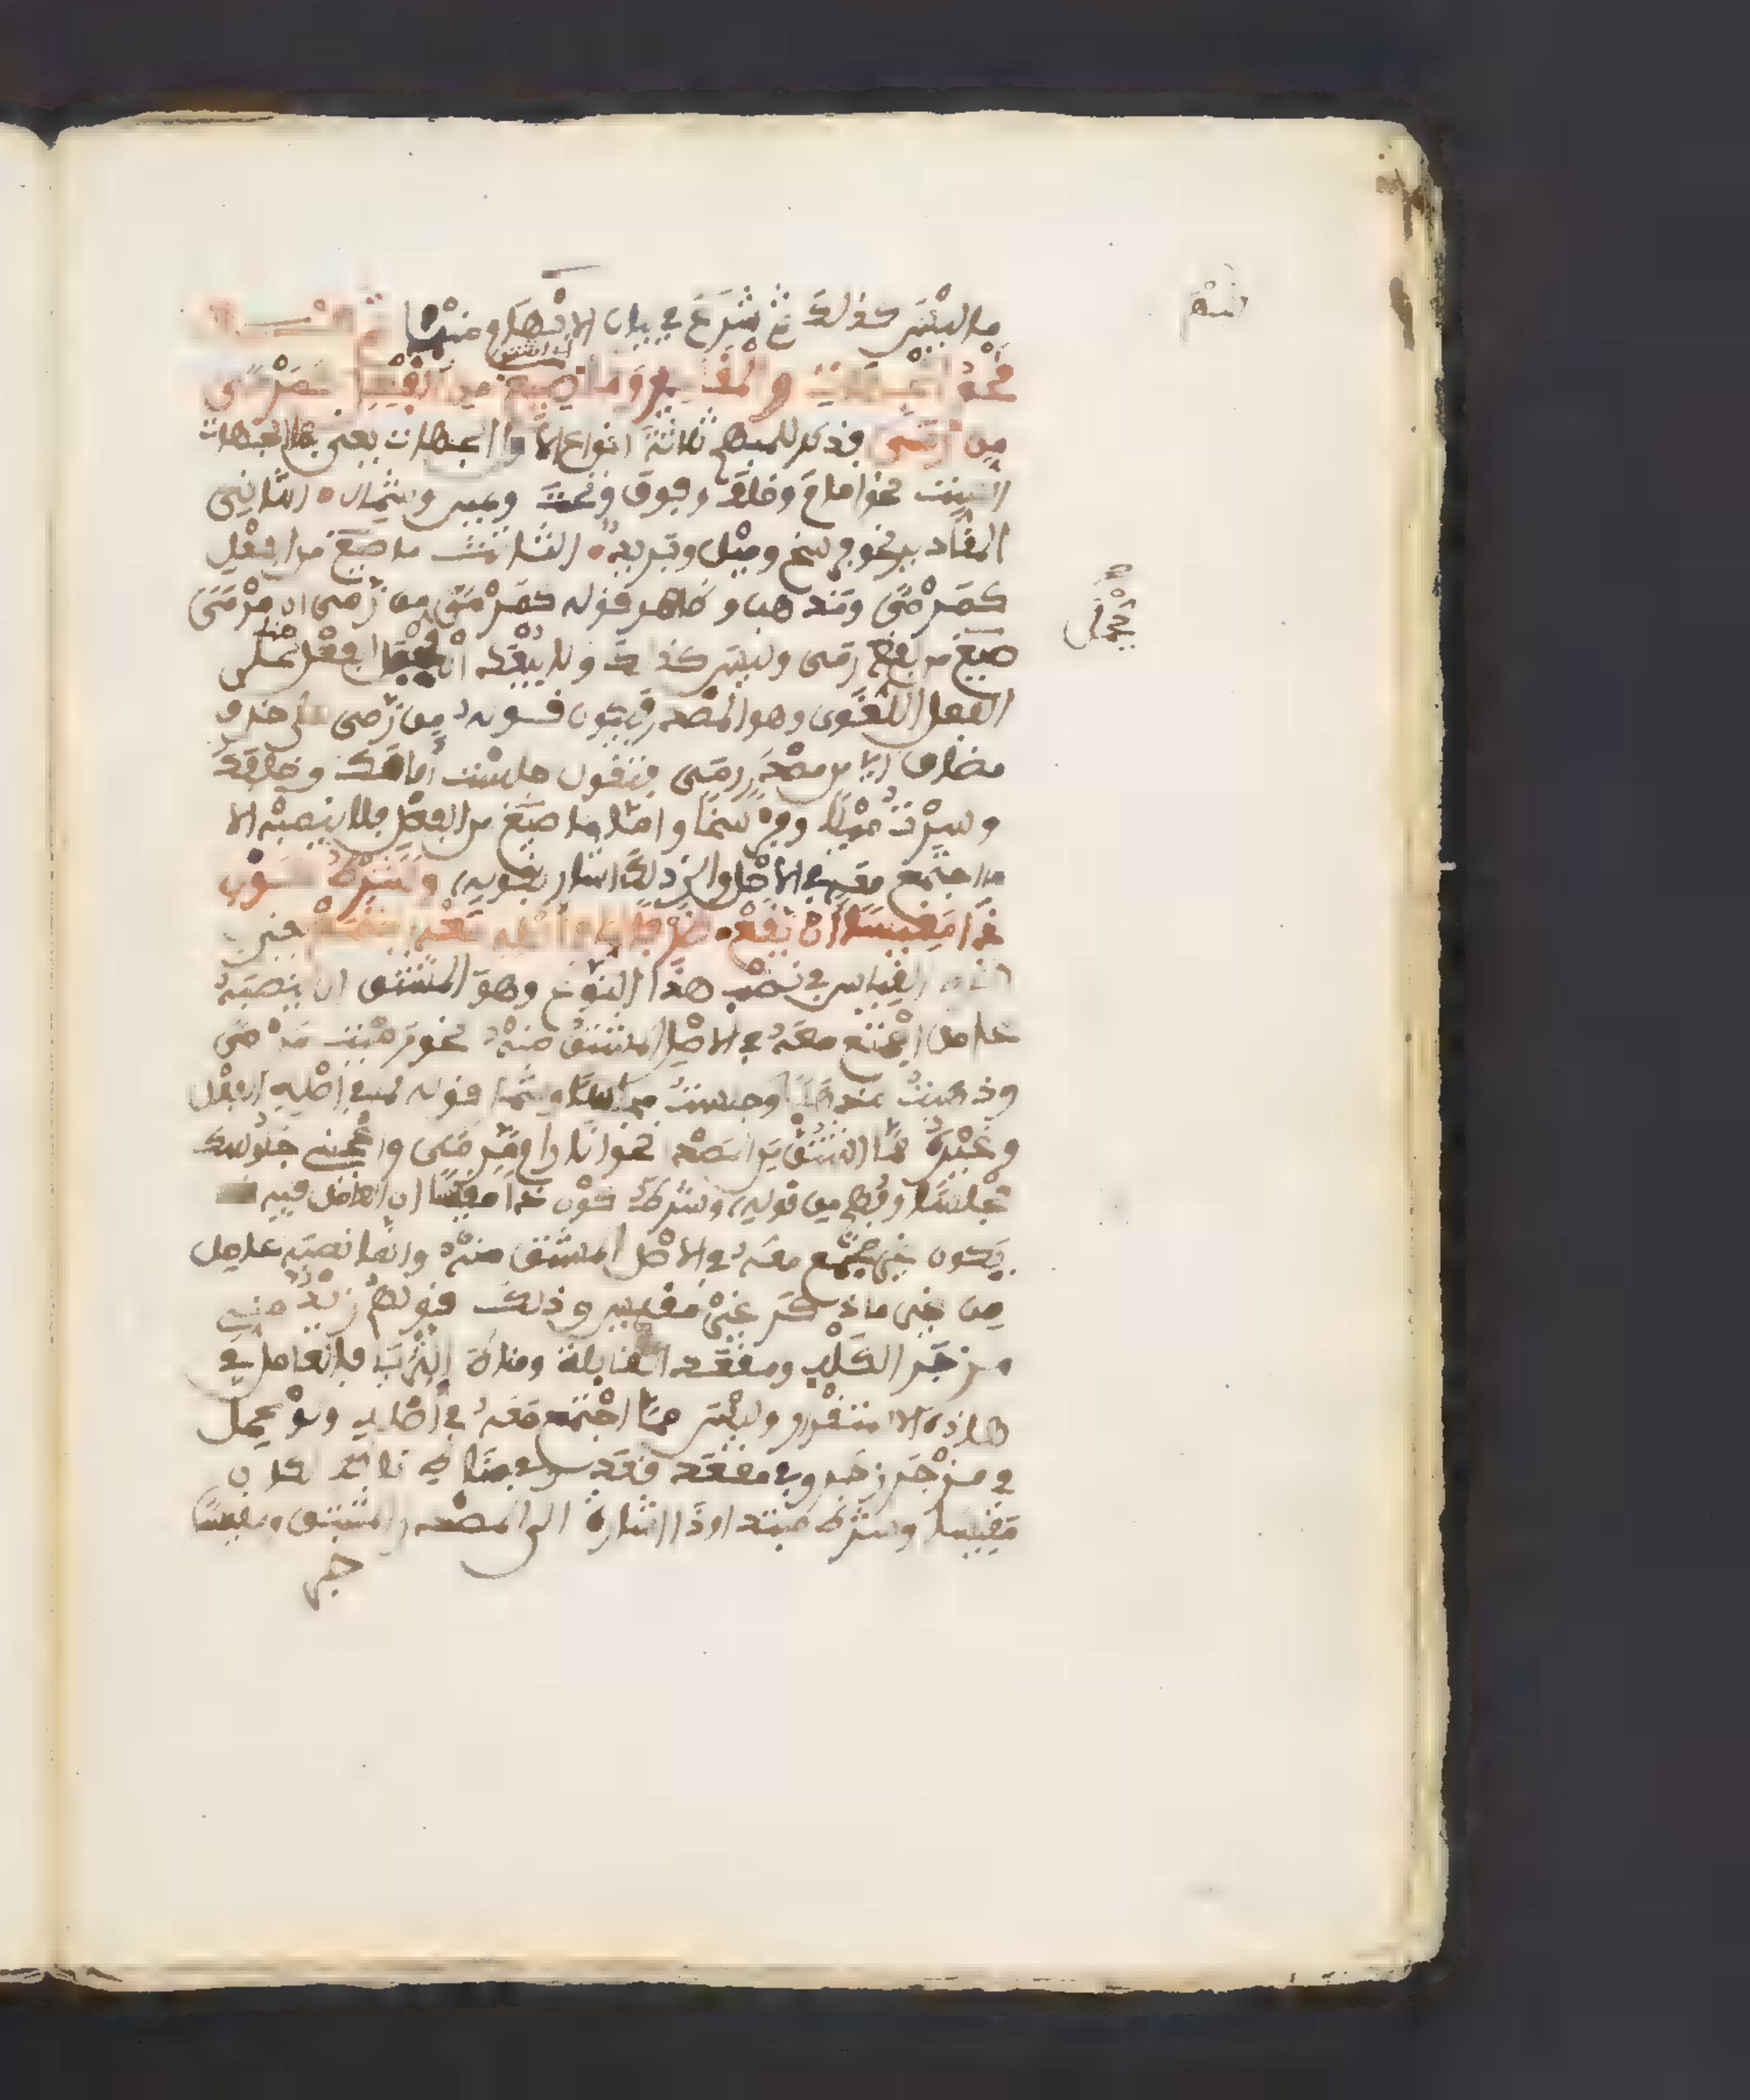 ما ليس كذلك ثم شرع في بيان الابهام منها فقـــال
نحو الجهات والمقادير وما صيغ من الفعل كمرمى
من رمى فذكر للمبهم ثلاثة انواع الأول الجهات يعني بها الجهات
الست نحو امام وخلف وفوق وتحت ويمين وشمال الثاني
المقادير نحو فرسخ وميل وبريد الثالث ما صيغ من الفعل
كمرمى ومذهب وظاهر قوله كمرمى من رمى ان مرمى
صيغ من لفظ رمى وليس كذلك ولا يبعد الفعل على
الفعل اللغوي وهو المصدر فيكون قوله من رمى على حذف
مضاف اي من مصدر رمى فتقول جلست أمامك وخلفك
وسرت ميلا وفرسخا واما ما صيغ من الفعل فلا ينصبه الا
ما اجتمع معه في الاصل والى ذلك اشار بقوله وشرط كون
ذا مقيسا ان يقع ظرفا لما في أصله معه اجتمع
القياس في نصب هذا النوع وهو المشتق ان ينصبه
عامل اجتمع معه في الاصل المشتق منه نحو رميت مرمى
وذهبت مذهبا وجلست مجلسا وشمل قوله لما في اصله الفعل
وغيره مما اشتق من المصدر نحو انا رام مرمى واعجبني جلوسك
مجلسا وفهم من قوله وشرط كون ذا مقيسا ان العامل فيه قد
يكون غير مجتمع معه في الاصل المشتق منه وانما نصبه عامل
من غير ما ذكر غير مقيس وذلك قولهم زيد مني
مزجر الكلب ومقعد القابلة ومناط الثريا فالعامل في
هاذه الاستقرار وليس مما اجتمع معه في أصله ولو عمل
في مزجر زجر وفي مقعد قعد وفي مناط ناط لكان
مقيسا وشرط مبتدا وذا اشارة الى المصدر المشتق ومقيسا
خبر